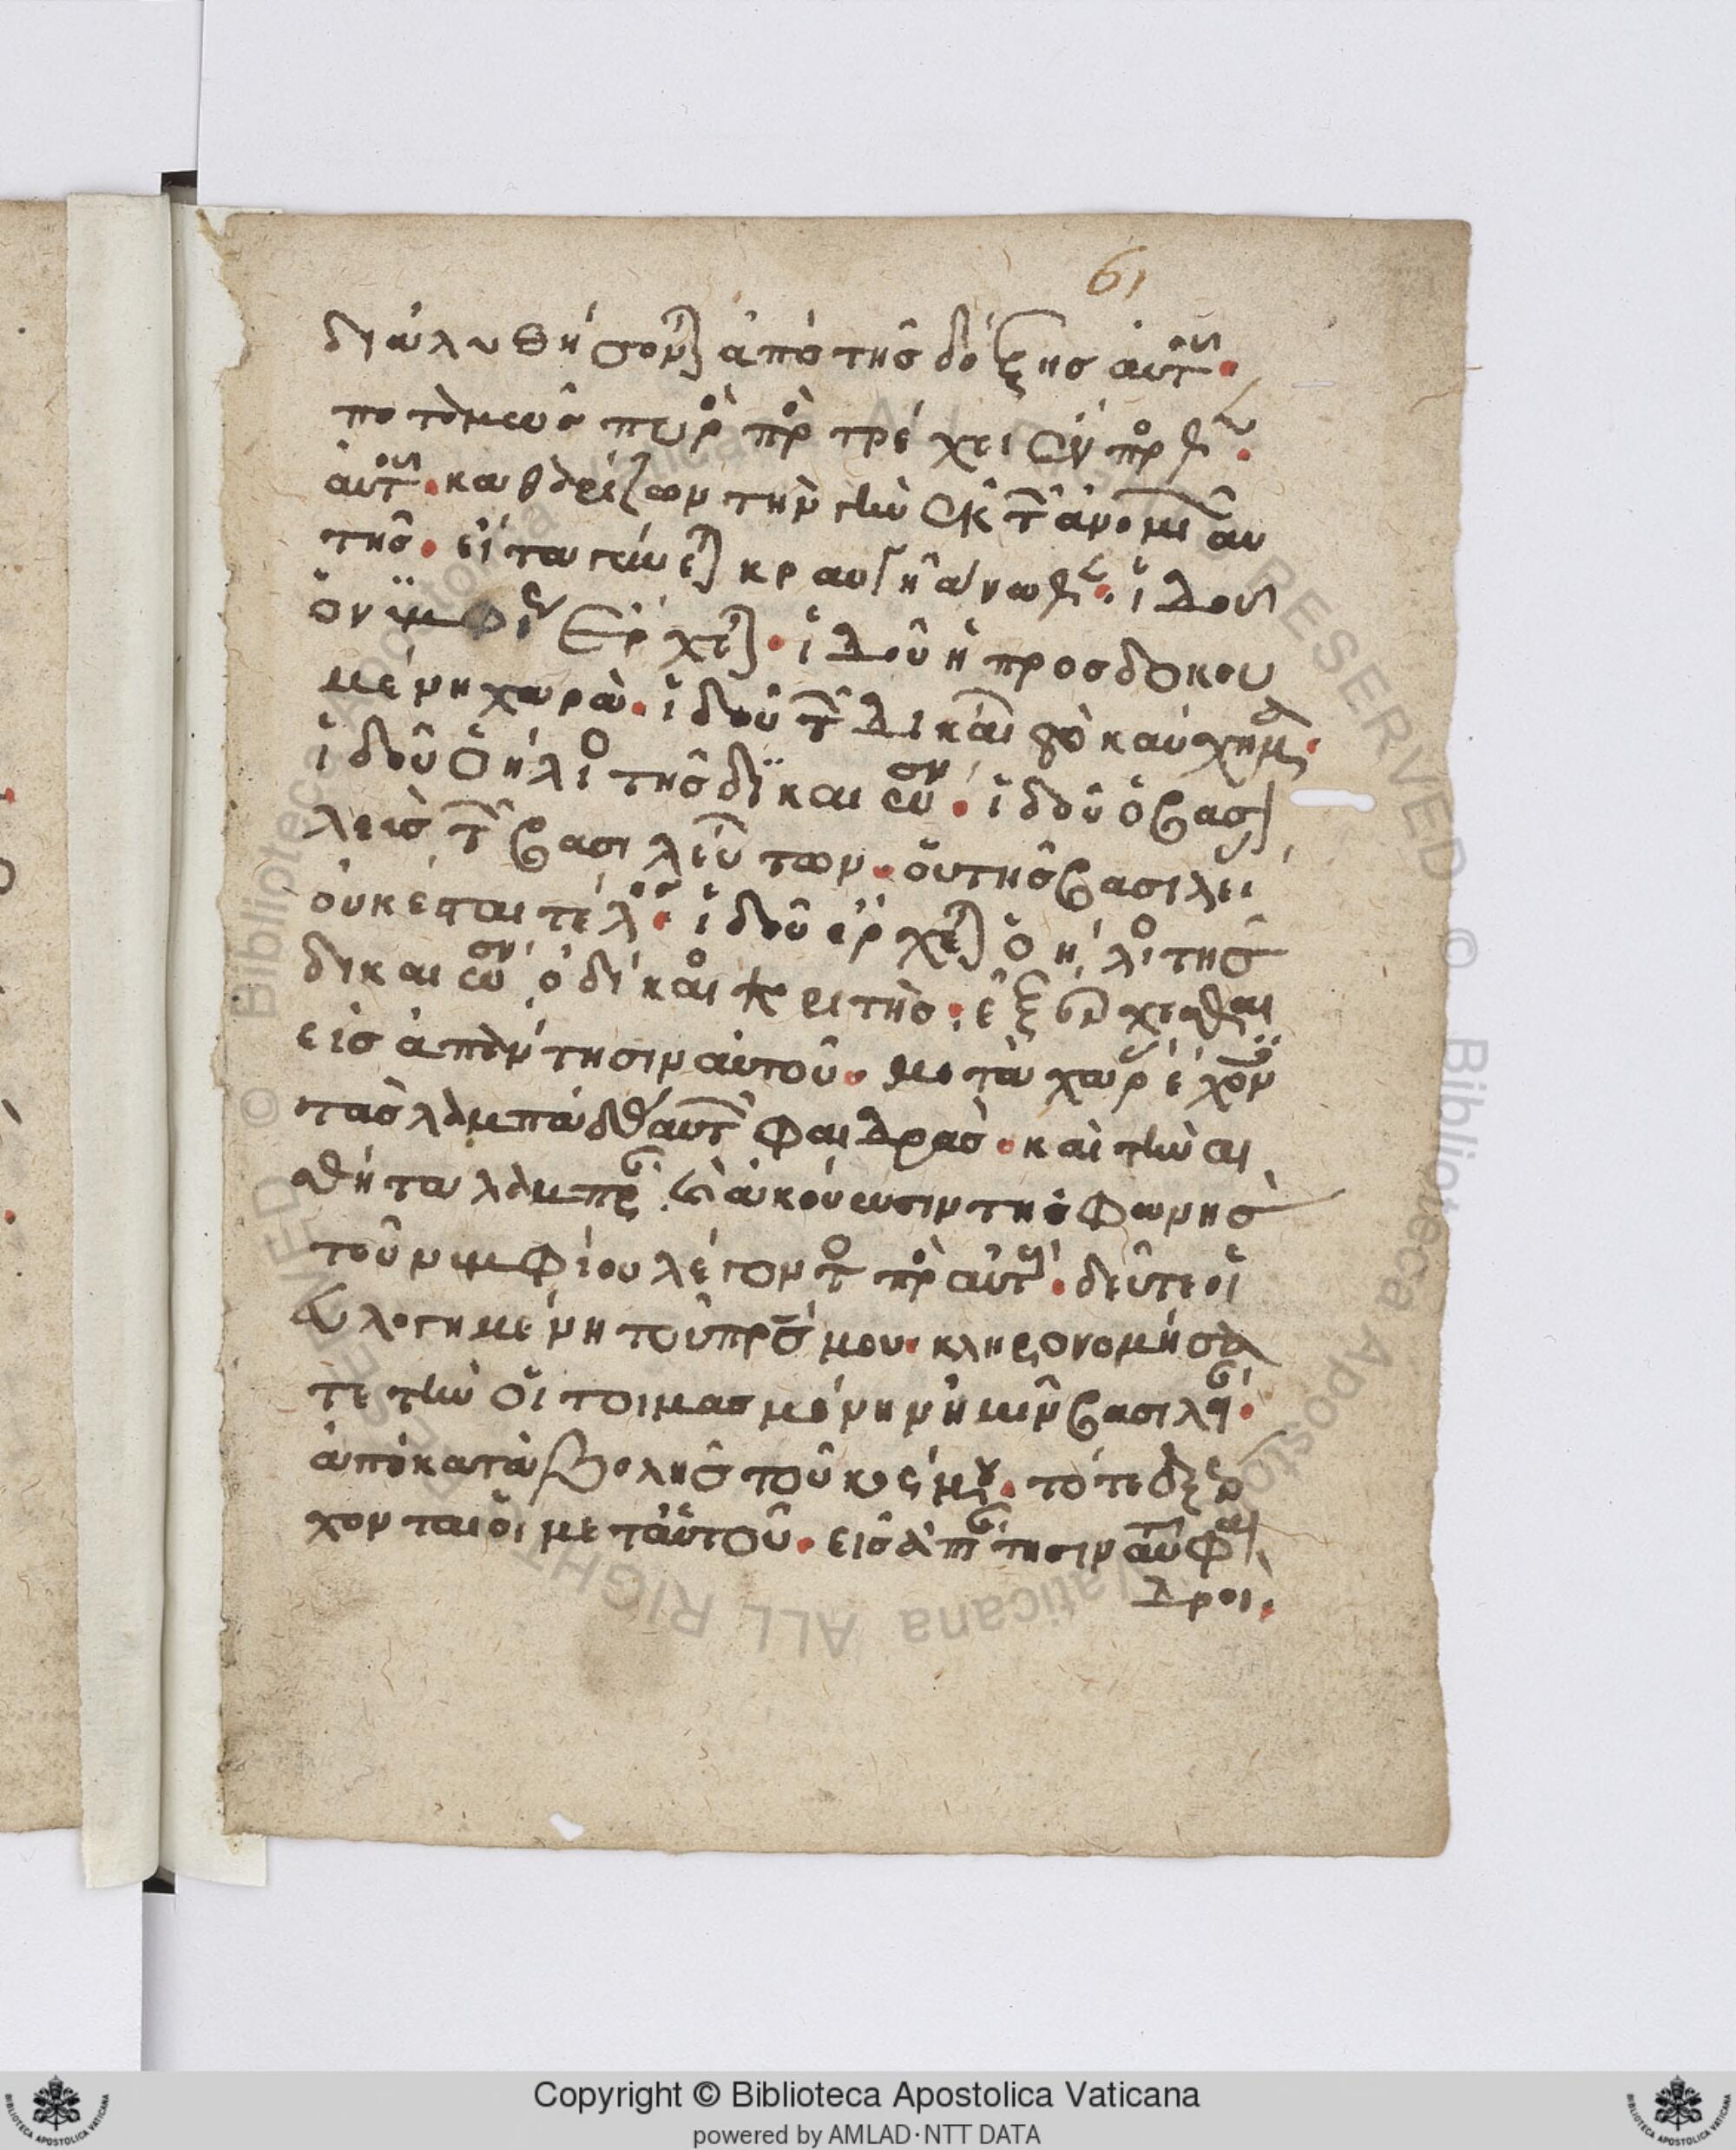 61
διαλυθήσονται ἀπὸ τῆς δόξης αὐτοῦ.
ποταμὸς πυρὸς προτρέχει ἔμπροσθεν
αὐτοῦ. καθαρίζων τὴν γῆν ἐκ τῶν ἀνομιῶν αὐ
τῆς. εἶτα γίνεται κραυγὴ ἄνωθεν. ἰδοὺ
ὁ νυμφίος ἔρχεται. ἰδοὺ ἡ προσδοκου
μένη χαρά. ἰδοὺ τῶν δικαίων τὸ καύχημα.
ἰδοὺ ὁ ἥλιος τῆς δικαιοσύνης. ἰδοὺ ὁ βασι
λεὺς τῶν βασιλευόντων. οὗ τῆς βασιλείας
οὐκ ἔσται τέλος. ἰδοὺ ἔρχεται ὁ ἥλιος τῆς
δικαιοσύνης ὁ δίκαιος κριτής. ἐξέρχεσθαι
εἰς ἀπάντησιν αὐτοῦ. μετὰ χαρᾶς ἔχοντες
τὰς λαμπάδας αὐτῶν φαιδράς. καὶ τὴν αἰ
σθῆτα λαμπράν. ἵνα ἀκούσωσιν τῆς φωνῆς
τοῦ νυμφίου λέγοντος πρὸς αὐτούς. δεῦτε οἱ
εὐλογημένη τοῦ πρς μου. κληρονομήσα
τε τὴν οἱτοιμασμένην ἡμῖν βασιλείαν.
ἀπὸ καταβολῆς τοῦ κόσμου. τότε ἐξέρ
χονται οἱ μετ' αὐτοῦ. εἰς ἀπάντησιν αὐτοῦ φαι
δροί.
Copyright © Biblioteca Apostolica Vaticana
powered by AMLAD·NTT DATA